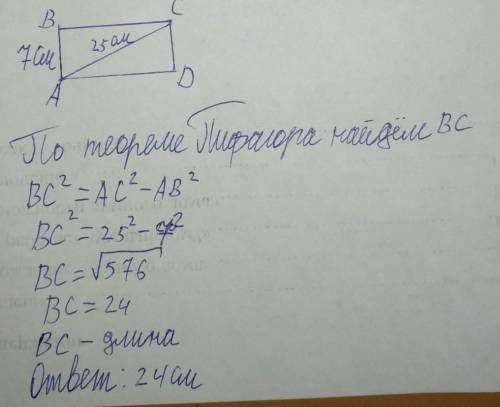 B C
7см 25см
A D
По теореме Пифагора найдём BC
BC² = AC² - AB²
BC² = 25² - 7²
BC = √576
BC = 24
BC - длина
Ответ: 24см